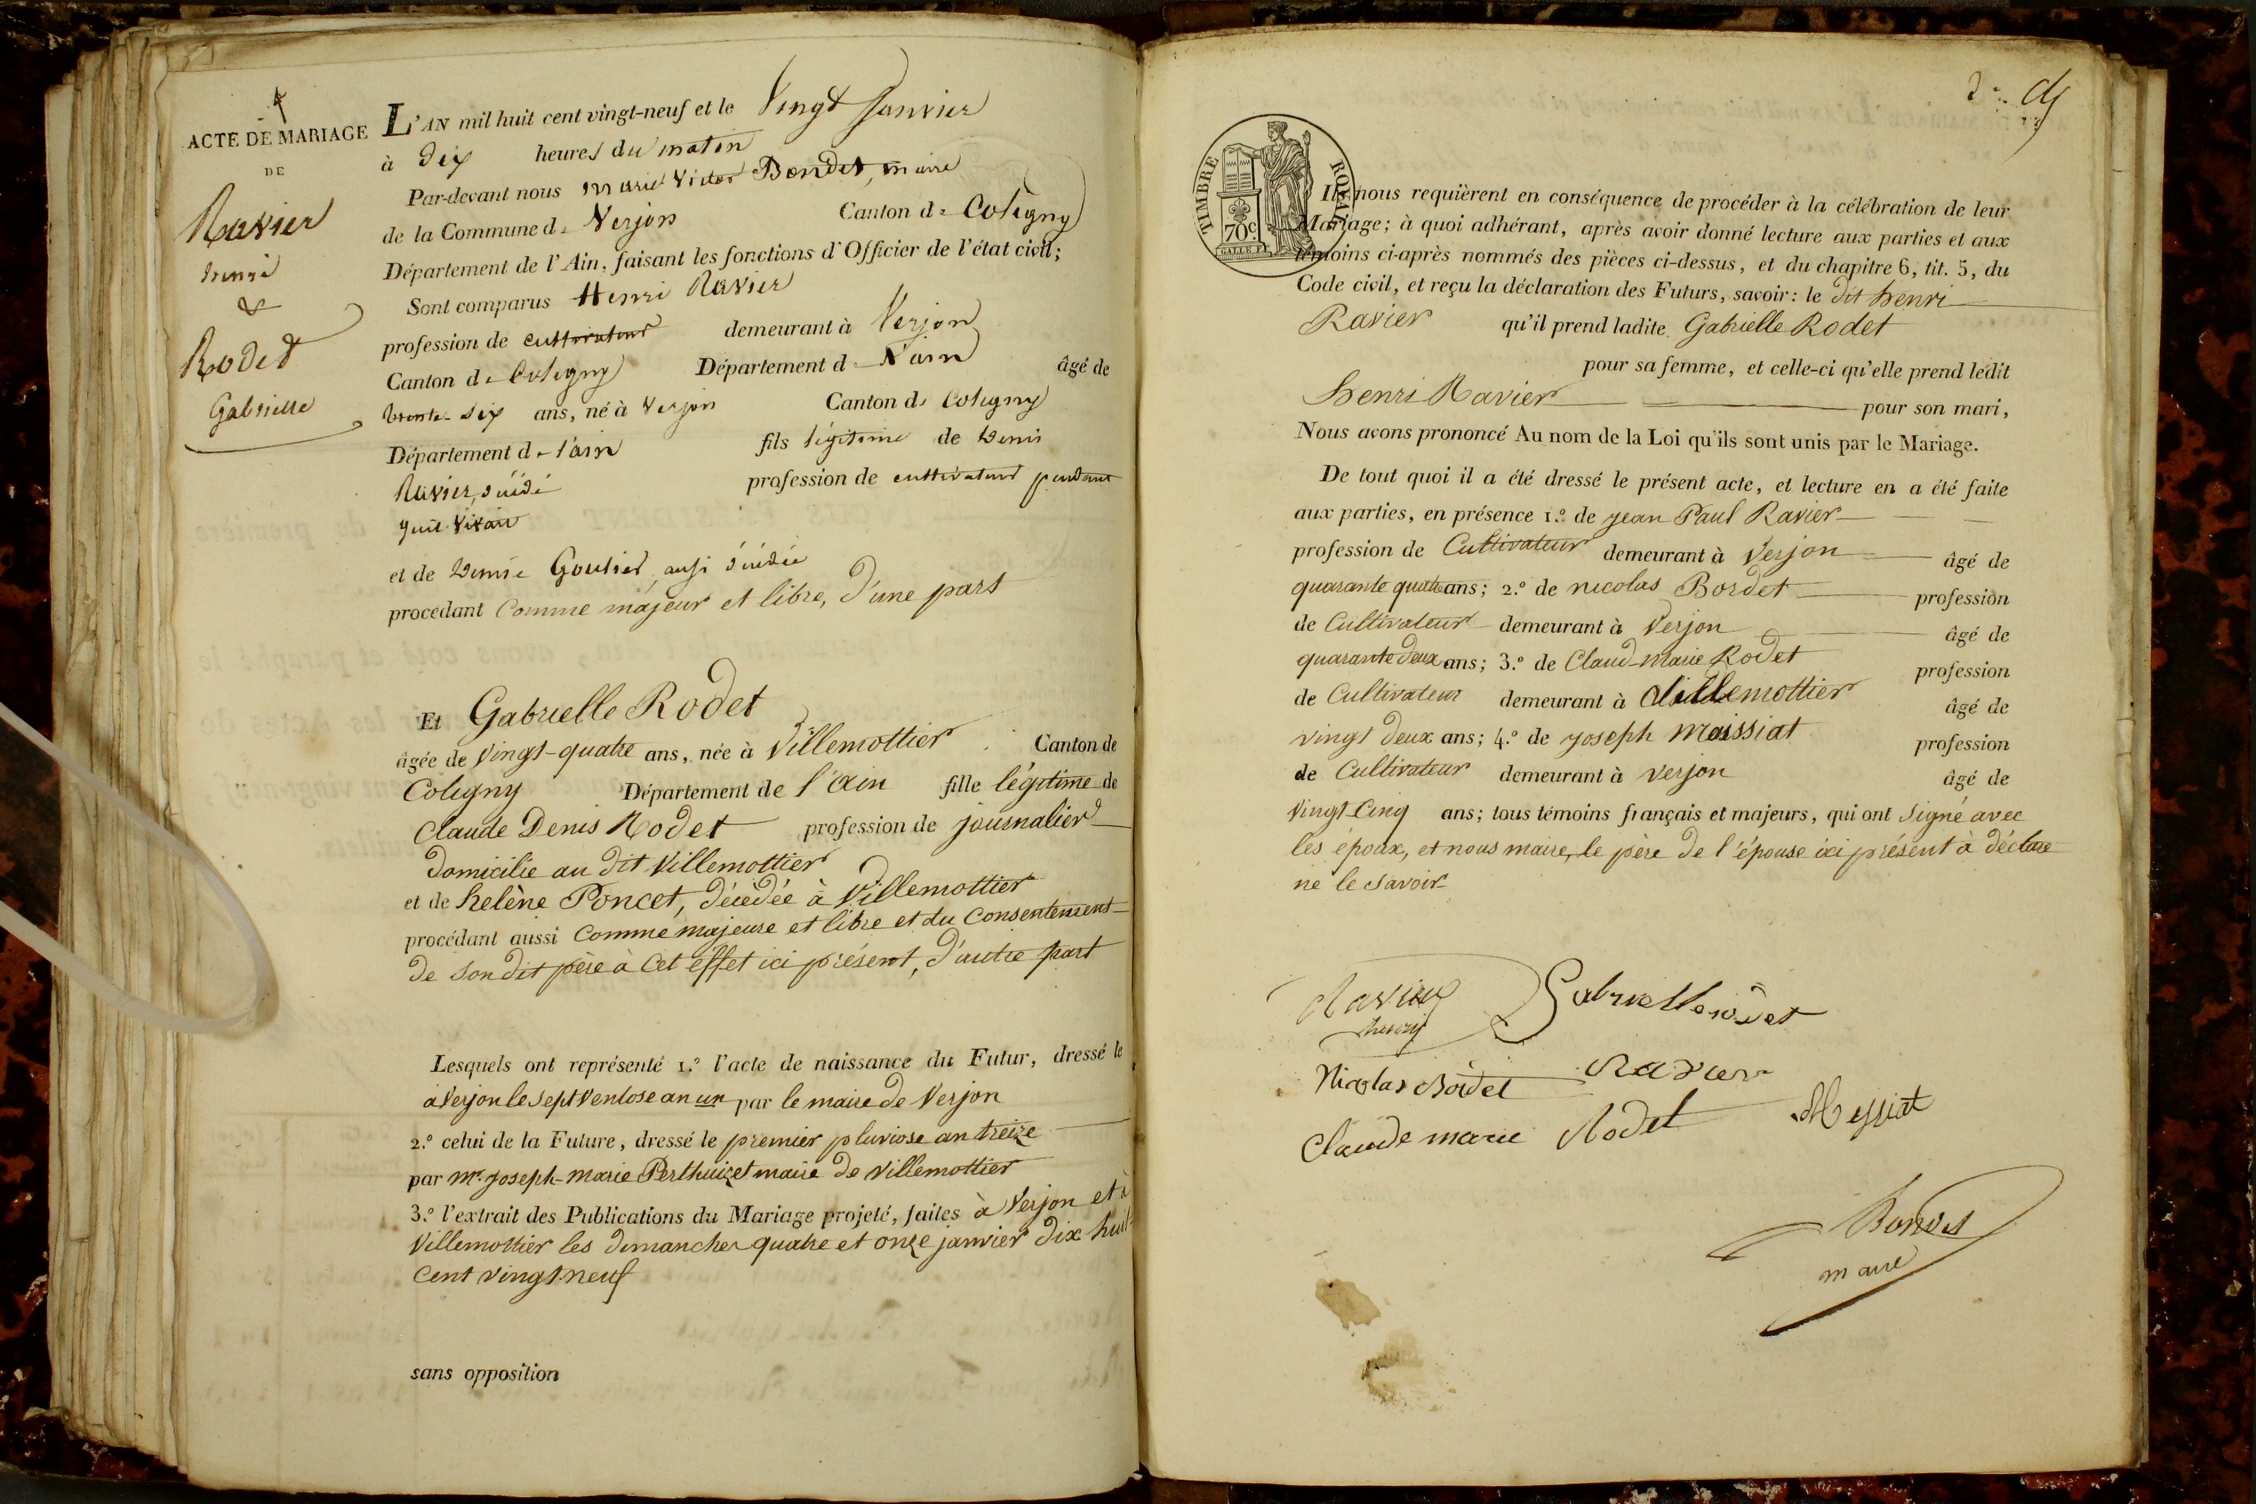 ACTE DE MARIAGE
DE
Ravier
henri
&
Rodet
Gabrielle
L'AN mil huit cent vingt-neuf et le Vingt Janvier
à Dix heures du matin
Par-devant nous marie Victor Bondet, maire
de la Commune de Verjon Canton de Coligny
Département de l'Ain, faisant les fonctions d'Officier de l'état civil;
Sont comparus Henri Ravier
profession de cultivateur demeurant à Verjon
Canton de Coligny Département de l'ain âgé de
trente-six ans, né à Verjon Canton de Coligny
Département de l'ain fils légitime de Denis
Ravier, décédé profession de cultivateur pendant
qu'il vivait
et de Denise Goutier, aussi décédée
procédant comme majeur et libre, d'une part
Et Gabrielle Rodet
âgée de vingt-quatre ans, née à Villemottier Canton de
Coligny Département de l'ain fille légitime de
Claude Denis Rodet profession de journalier
domicilie au dit Villemottier
et de helène Poncet, décédée à Villemottier
procédant aussi comme majeure et libre et du consentement
de son dit père à cet effet ici présent, d'autre part
Lesquels ont représenté 1.º l'acte de naissance du Futur, dressé le
a Verjon le sept ventose an un par le maire de Verjon
2.º celui de la Future, dressé le premier pluviose an treize
par mr. joseph-marie Perthuizet maire de villemottier
3.º l'extrait des Publications du Mariage projeté, faites à Verjon et à
Villemottier les dimanches quatre et onze janvier dix huit
cent vingt neuf
sans opposition
TIMBRE ROYAL
70c
Ils nous requièrent en conséquence de procéder à la célébration de leur
Mariage; à quoi adhérant, après avoir donné lecture aux parties et aux
témoins ci-après nommés des pièces ci-dessus, et du chapitre 6, tit. 5, du
Code civil, et reçu la déclaration des Futurs, savoir: le dit henri
Ravier qu'il prend ladite Gabrielle Rodet
pour sa femme, et celle-ci qu'elle prend ledit
henri Ravier pour son mari,
Nous avons prononcé Au nom de la Loi qu'ils sont unis par le Mariage.
De tout quoi il a été dressé le présent acte, et lecture en a été faite
aux parties, en présence 1.º de jean Paul Ravier
profession de Cultivateur demeurant à Verjon âgé de
quarante quatre ans; 2.º de nicolas Bordet profession
de Cultivateur demeurant à Verjon âgé de
quarante deux ans; 3.º de Claud-marie Rodet profession
de Cultivateur demeurant à Villemottier âgé de
vingt deux ans; 4.º de joseph Maissiat profession
de Cultivateur demeurant à Verjon âgé de
vingt Cinq ans; tous témoins français et majeurs, qui ont signé avec
les époux, et nous maire, le père de l'épouse ici présent à déclare
ne le savoir
Ravier
henri
Gabrielle rodet
Nicolas Bordet Ravier
Claude marie Rodet Messiat
Bondet
maire